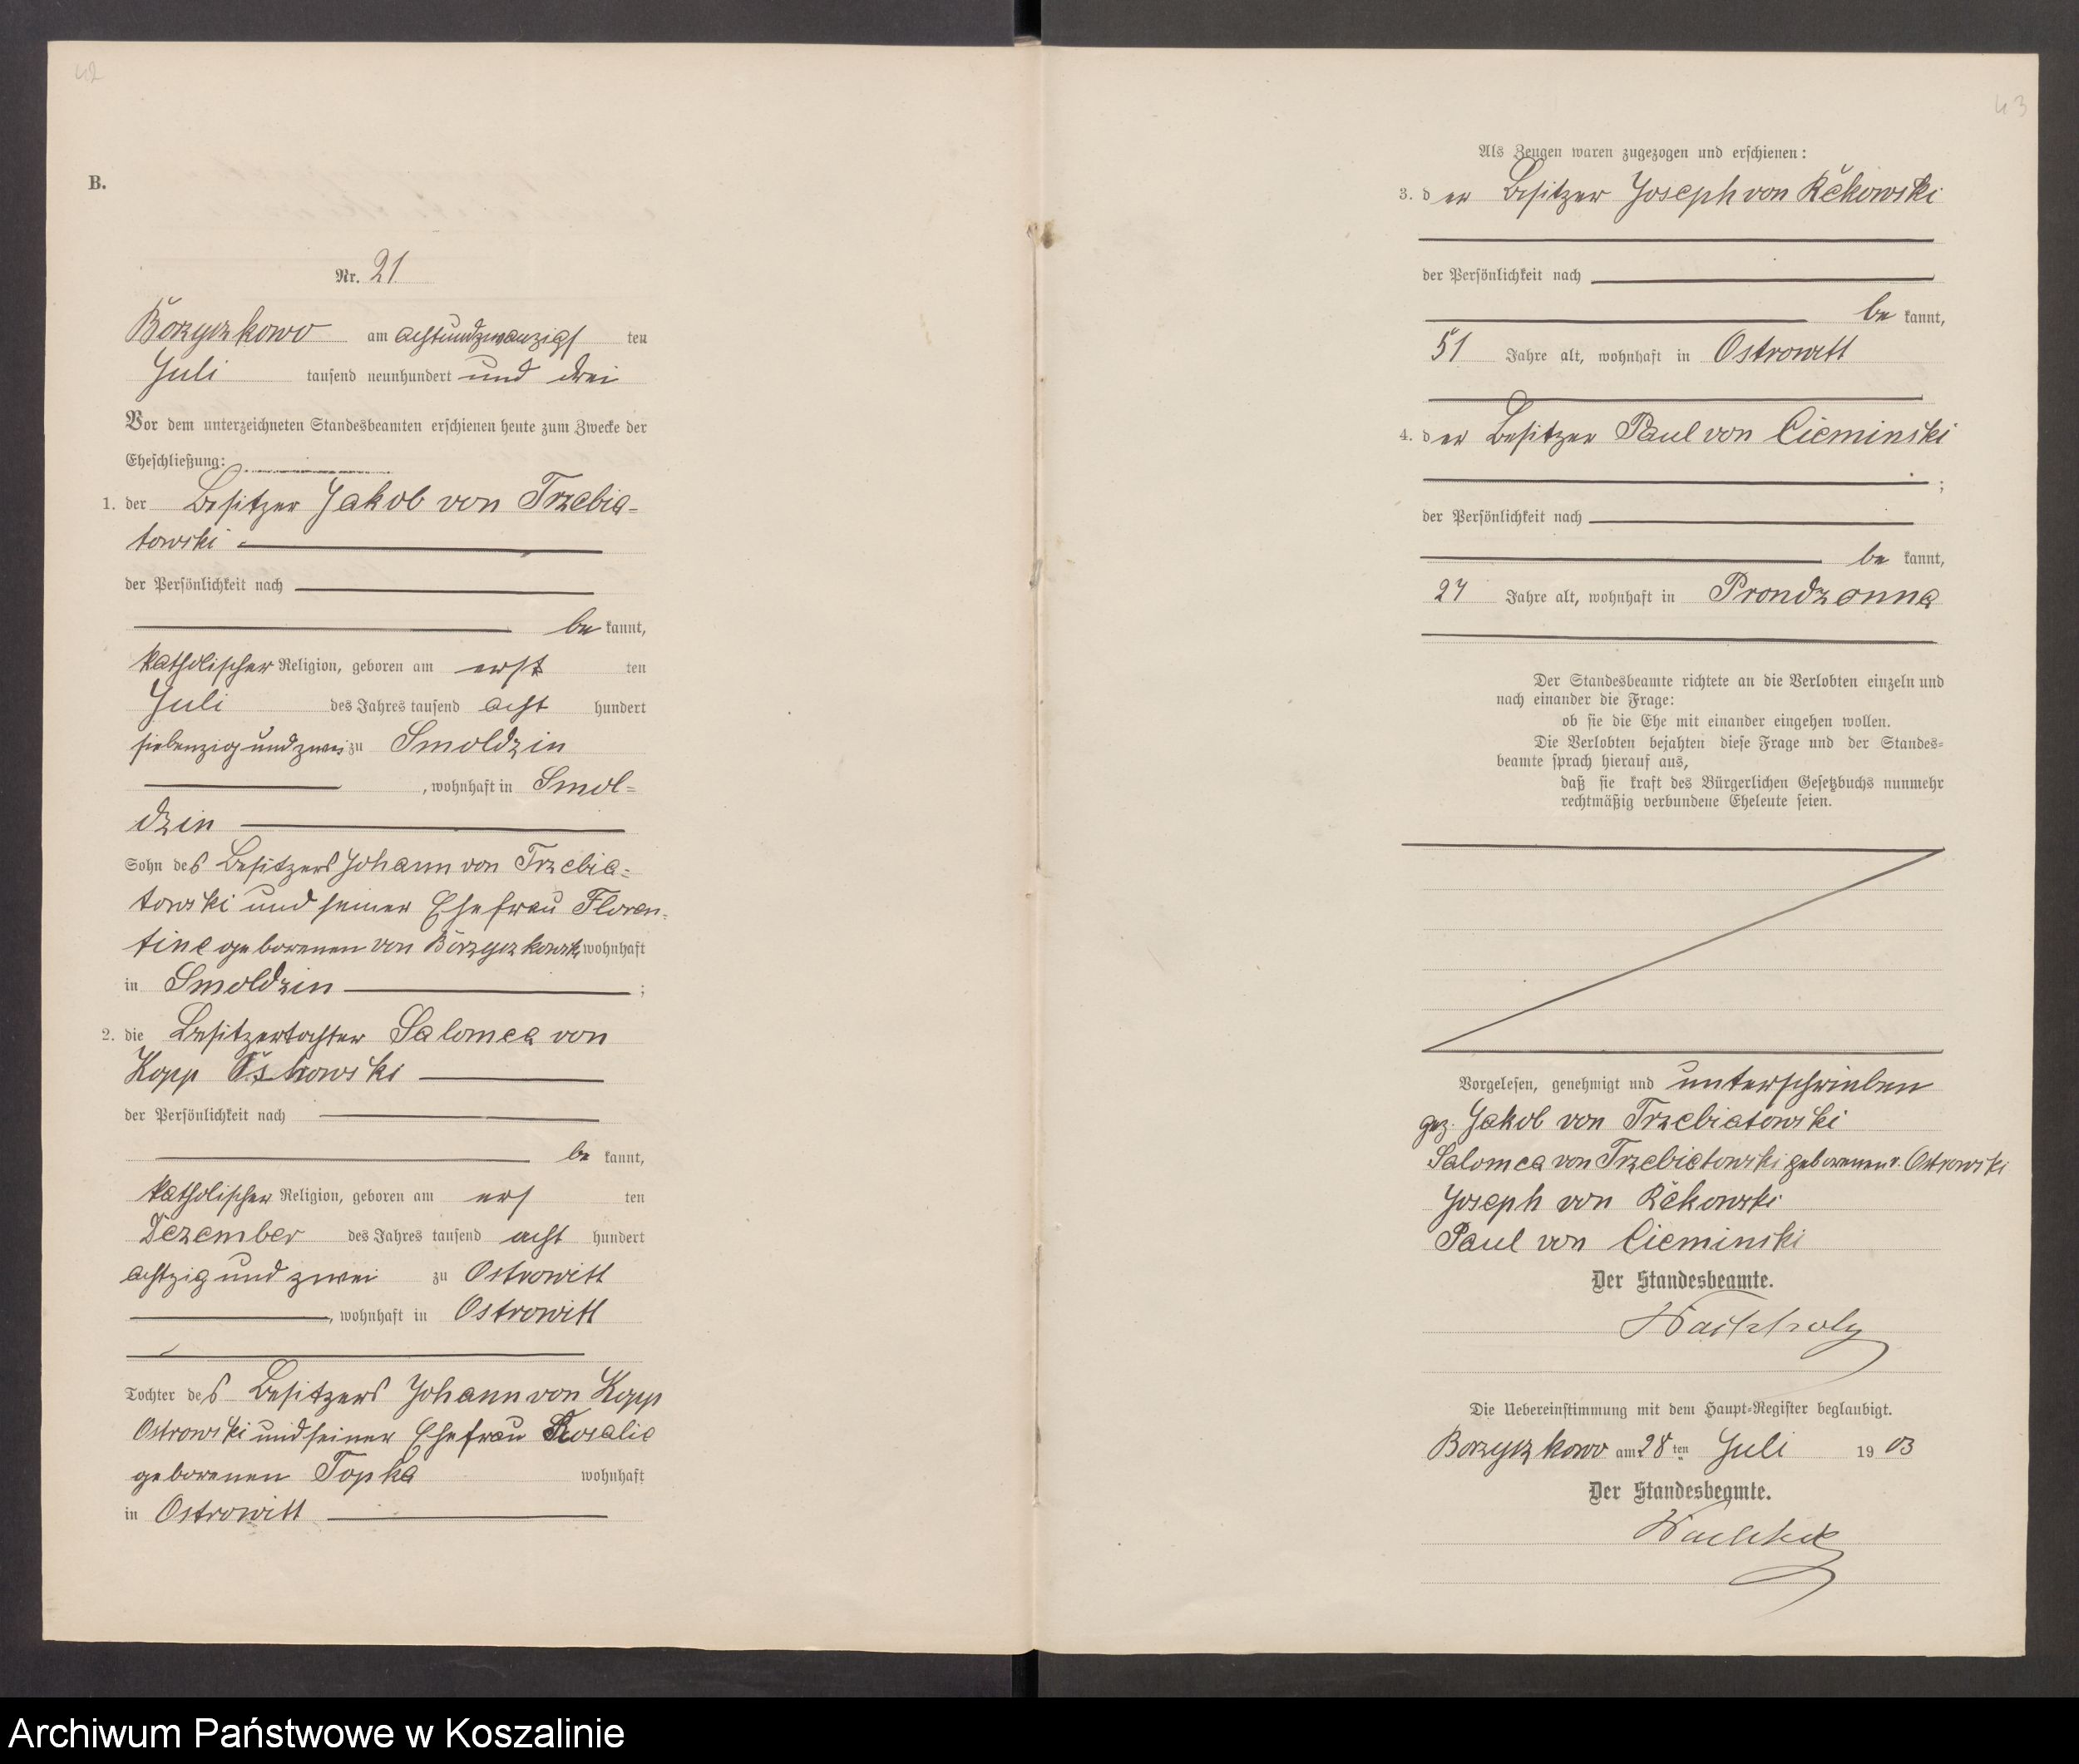 42
B.
Nr. 21
Borzyszkowo am achtundzwanzigs ten
Juli tausend neunhundert und drei
Vor dem unterzeichneten Standesbeamten erschienen heute zum Zwecke der
Eheschließung:
1. der Besitzer Jakob von Trzebia-
towski
der Persönlichkeit nach
be kannt,
katholischer Religion, geboren am erst ten
Juli des Jahres tausend acht hundert
siebenzig und zwei zu Smoldzin
, wohnhaft in Smol-
dzin
Sohn des Besitzers Johann von Trzebia-
towski und seiner Ehefrau Floren-
tine geborenen von wohnhaft
in Smoldzin ;
2. die Besitzertochter Salomea von
Kopp Ostrowski
der Persönlichkeit nach
be kannt,
katholischer Religion, geboren am ers ten
Dezember des Jahres tausend acht hundert
achtzig und zwei zu Ostrowitt
, wohnhaft in Ostrowitt
Tochter des Besitzers Johann von Kopp
Ostrowski und seiner Ehefrau Rosalie
geborenen Topka wohnhaft
in Ostrowitt
43
Als Zeugen waren zugezogen und erschienen:
3. der Besitzer Joseph von Rekowski
der Persönlichkeit nach
be kannt,
51 Jahre alt, wohnhaft in Ostrowitt
4. der Besitzer Paul von Cieminski
;
der Persönlichkeit nach
be kannt,
27 Jahre alt, wohnhaft in Prondzonna
Der Standesbeamte richtete an die Verlobten einzeln und
nach einander die Frage:
ob sie die Ehe mit einander eingehen wollen.
Die Verlobten bejahten diese Frage und der Standes-
beamte sprach hierauf aus,
daß sie kraft des Bürgerlichen Gesetzbuchs nunmehr
rechtmäßig verbundene Eheleute seien.
Vorgelesen, genehmigt und unterschrieben
gez. Jakob von Trzebiatowski
Salomea von Trzebiatowski geborenen v. Ostrowski
Joseph von Rekowski
Paul von Cieminski
Der Standesbeamte.
Die Uebereinstimmung mit dem Haupt-Register beglaubigt.
Borzyszkowo am 28 ten Juli 19 03
Der Standesbeamte.
Archiwum Państwowe w Koszalinie